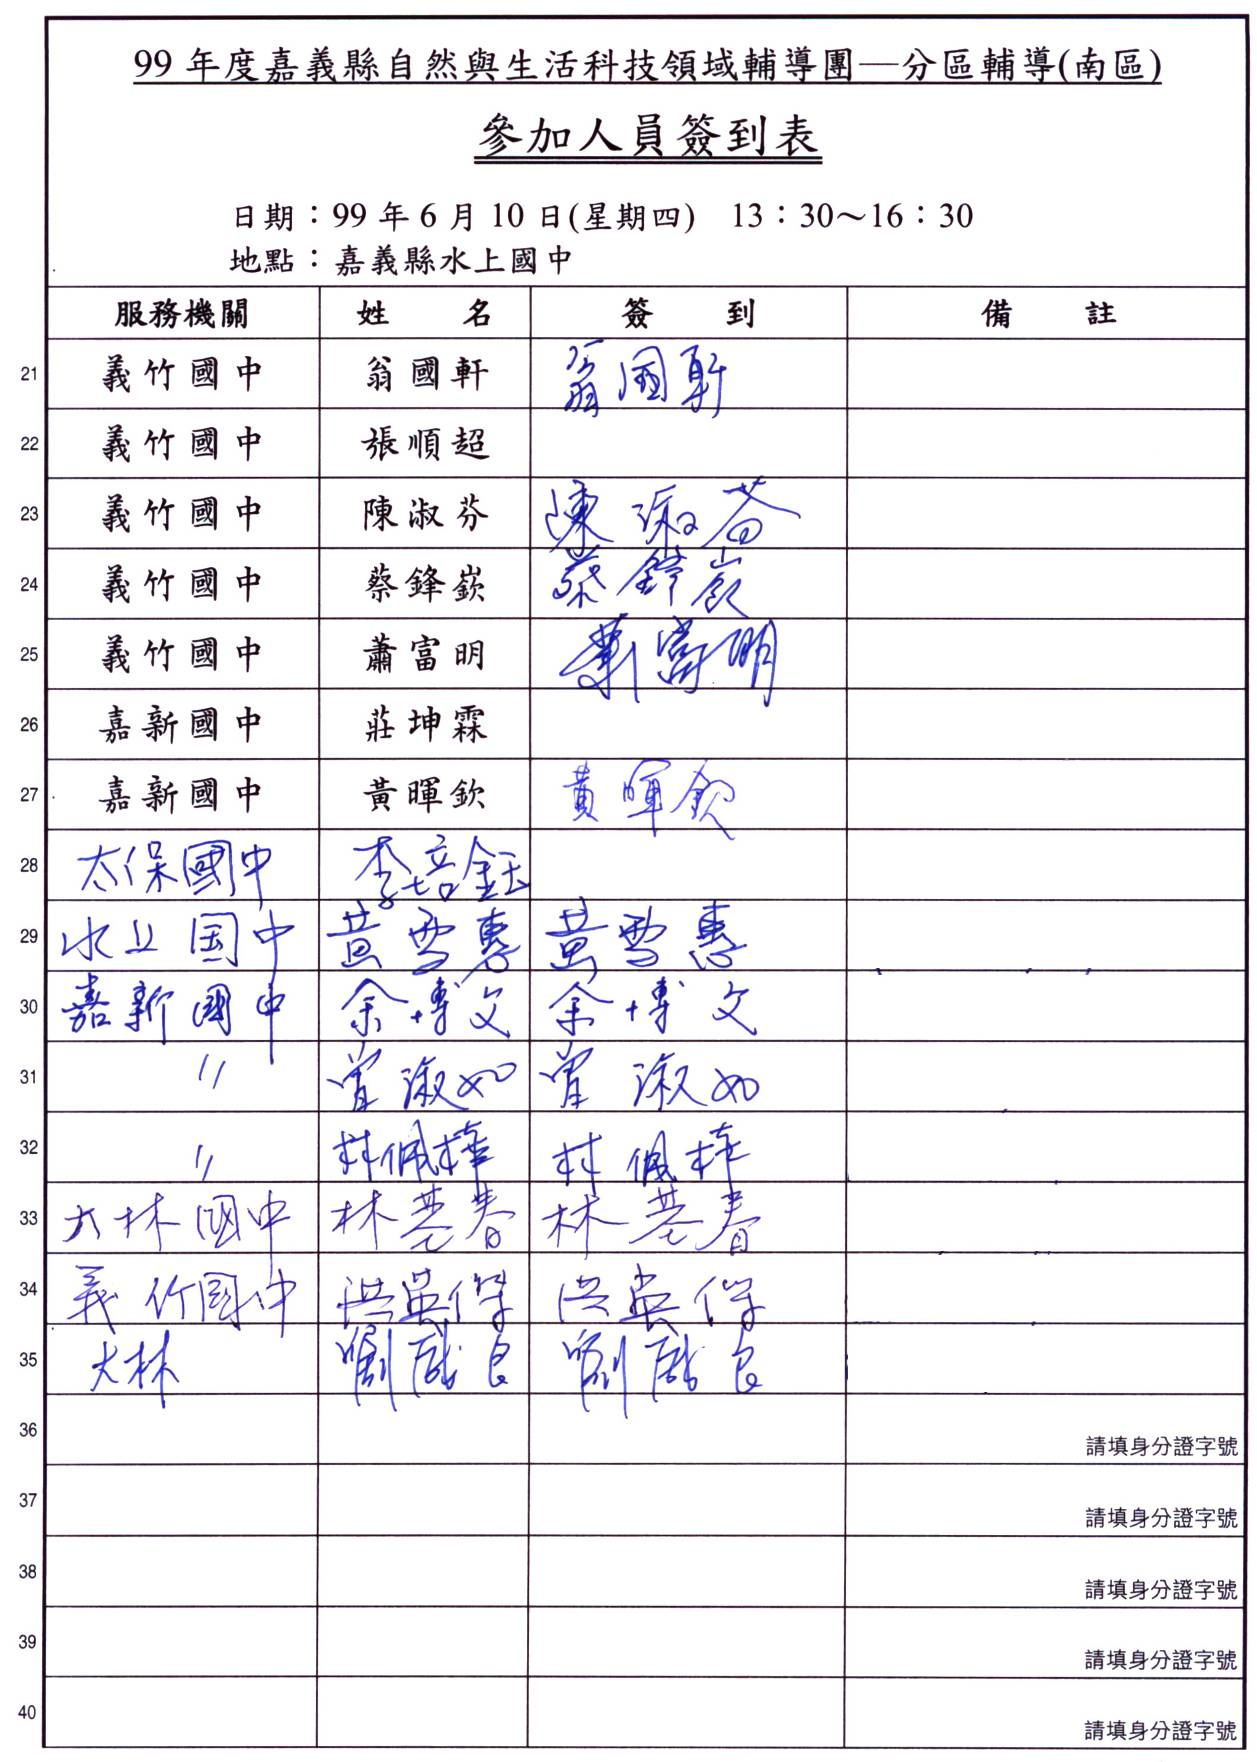 99 年度嘉義縣自然與生活科技領域輔導團—分區輔導(南區)
參加人員簽到表
日期：99 年 6 月 10 日(星期四) 13：30～16：30
地點：嘉義縣水上國中
服務機關 姓 名 簽 到 備 註
21 義竹國中 翁國軒 翁國軒
22 義竹國中 張順超
23 義竹國中 陳淑芬 陳淑芬
24 義竹國中 蔡鋒嶔 蔡鋒嶔
25 義竹國中 蕭富明 蕭富明
26 嘉新國中 莊坤霖
27 嘉新國中 黃暉欽 黃暉欽
28 太保國中 李培鈺
29 水上国中 黃雪惠 黃雪惠
30 嘉新國中 余博文 余博文
31 〃 曾淑如 曾淑如
32 〃 林佩樺 林佩樺
33 大林國中 林基春 林基春
34 義竹國中 洪英傑 洪英傑
35 大林 劉良 劉良
36 請填身分證字號
37 請填身分證字號
38 請填身分證字號
39 請填身分證字號
40 請填身分證字號